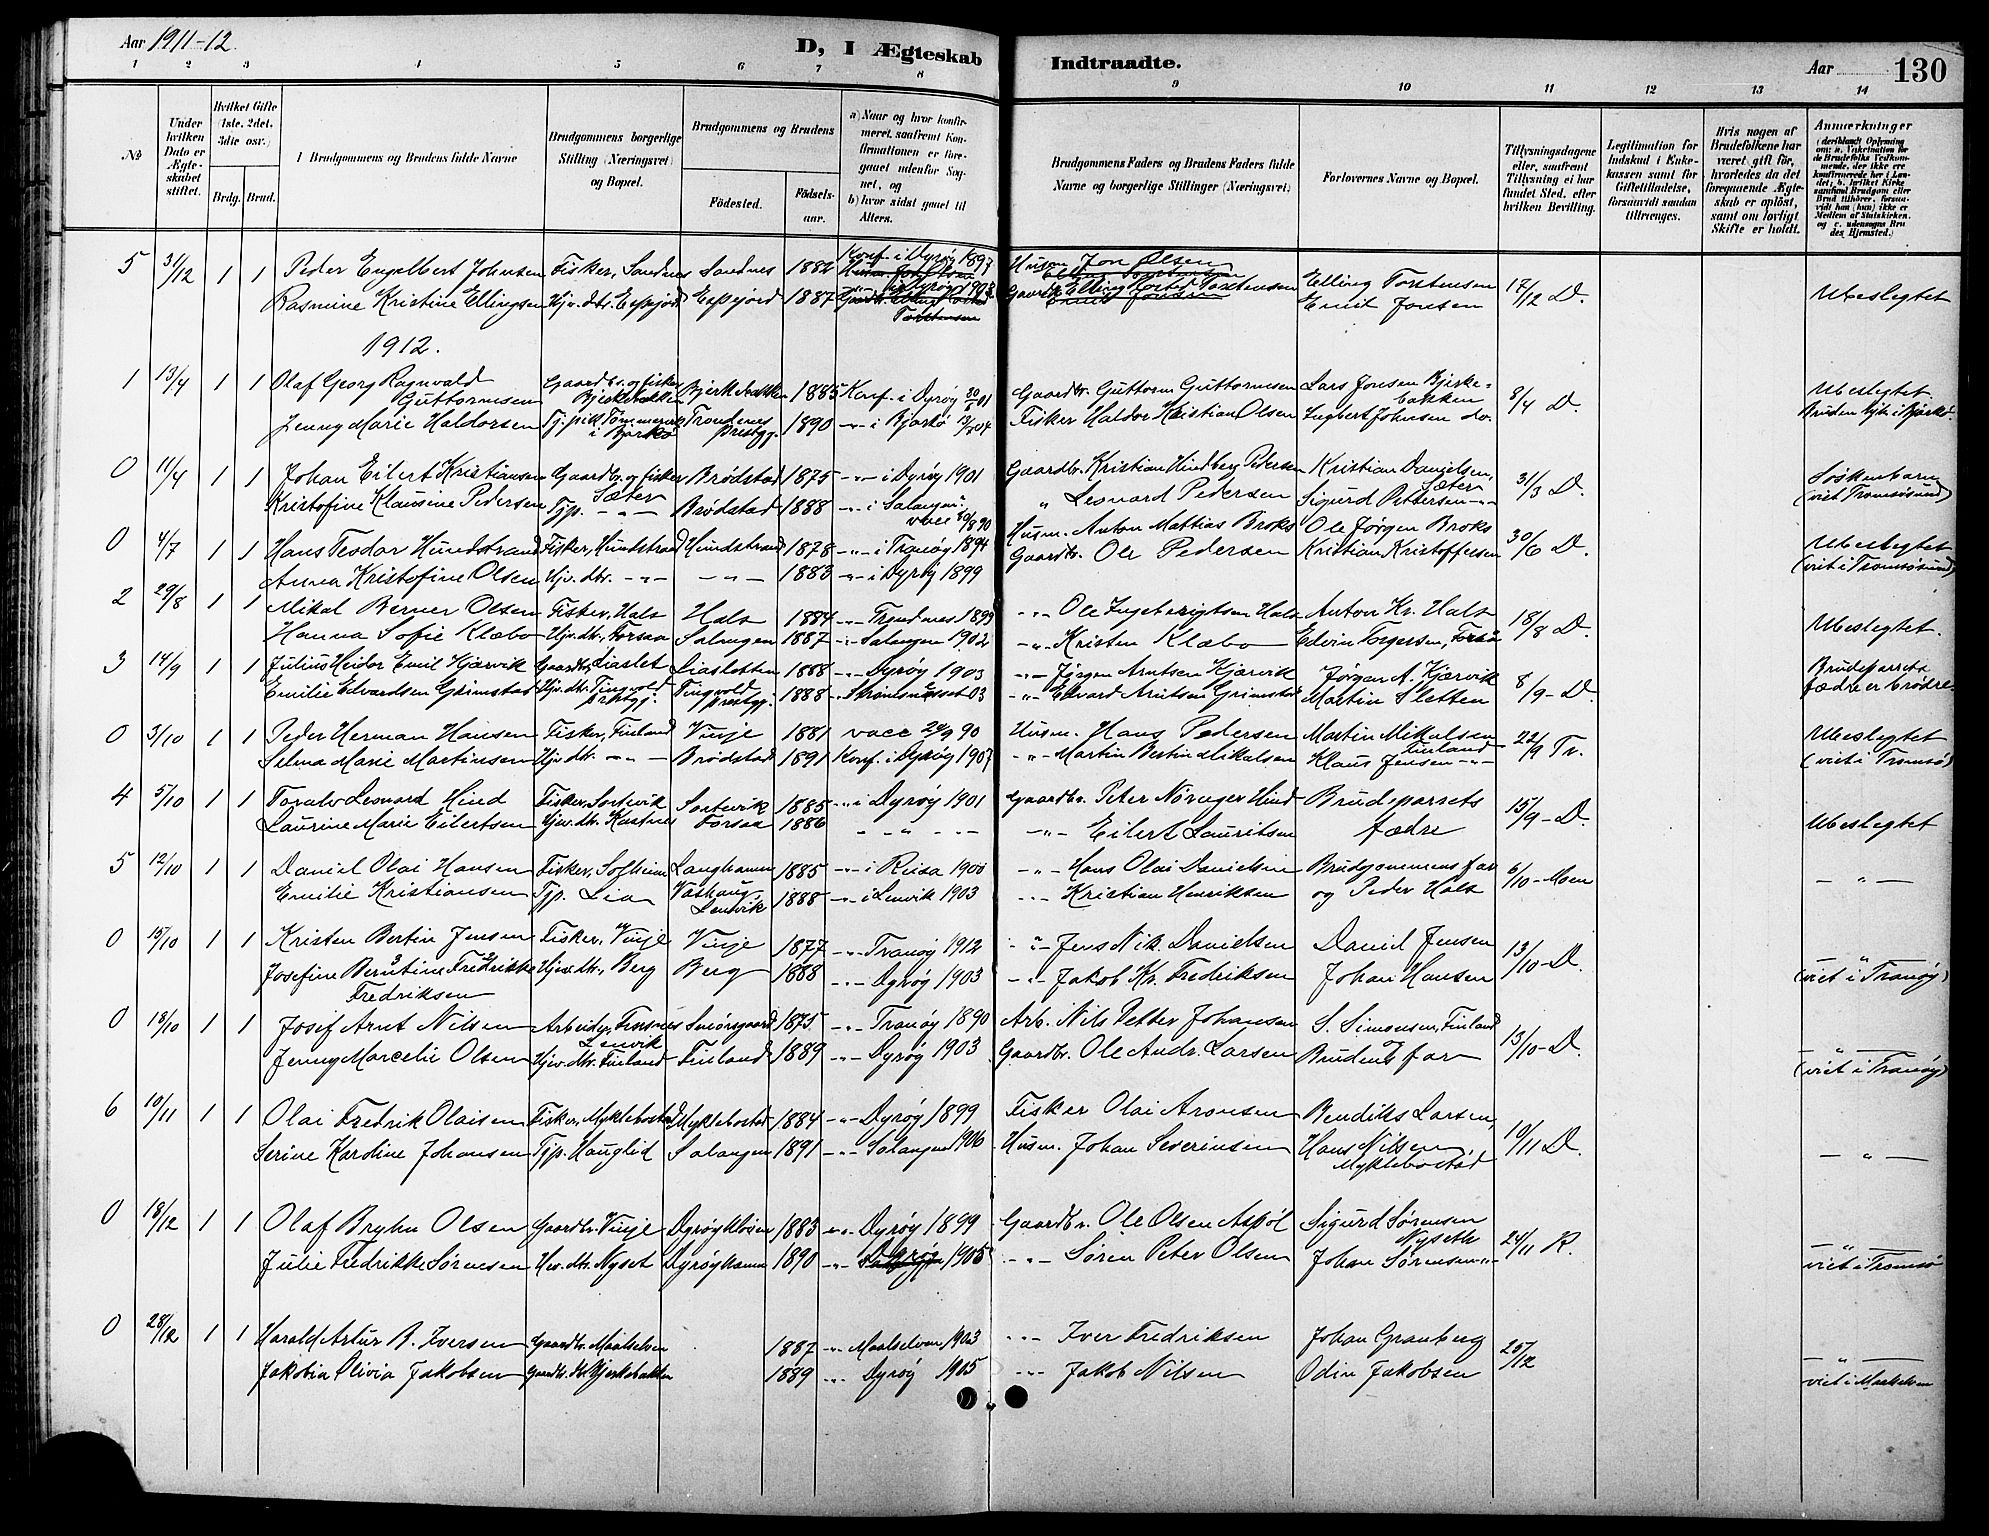 Aar 1911-12. D, I Ægteskab Indtraadte. Aar 130
1 2 3 4 5 6 7 8 9 10 11 12 13 14
No
Under hvilken Dato er Ægteskabet stiftet.
Hvilket Gifte (1ste, 2det, 3die osv.)
Brdg. Brud.
Brudgommens og Brudens fulde Navne
Brudgommens borgerlige Stilling (Næringsvei) og Bopæl.
Brudgommens og Brudens
Fødested. Fødselsaar.
a) Naar og hvor konfirmeret, saafremt Konfirmationen er foregaaet udenfor Sognet, og
b) hvor sidst gaaet til Alters.
Brudgommens Faders og Brudens Faders fulde Navne og borgerlige Stillinger (Næringsvei)
Forlovernes Navne og Bopæl.
Tillysningsdagene eller, saafremt Tillysning ei har fundet Sted, efter hvilken Bevilling.
Legitimation for Indskud i Enkekassen samt for Giftetilladelse, forsaavidt saadan tiltrænges.
Hvis nogen af Brudefolkene har været gift før, hvorledes da det foregaaende Ægteskab er opløst, samt om lovligt Skifte er holdt.
Anmærkninger
5 31/12 1 1 Peder Engelbert Johnsen Fisker, Sandnes Sandnes 1882 Konf. i Dyrøy 1897 Husm. Jon Olsen Elling Torstensen 17/12 D. Ubeslegtet
Rasmine Kristine Ellingsen Hjv. dtr. Espejord Espejord 1887 Dyrøy 1903 Gaardb. Elling Torstensen Emit Jonsen
1912.
1 13/4 1 1 Olaf Georg Ragnvald Guttormsen Gaardbr. og fisker Bjerkebakken Bjerkebakken 1885 Konf. i Dyrøy 30/6 01 Gaardbr. Guttorm Guttormsen Lars Jonsen Bjerkebakken 8/4 D. Ubeslegtet.
Jenny Marie Haldorsen Tj. pik. i Bjarkø Trondenes prestgj. 1890 -"- i Bjarkø 04 Fisker Haldor Kristian Olsen Ingbert Johnsen do. Bruden i Bjarkø
0 11/4 1 1 Johan Eilert Kristiansen Gaardbr. og fisker Sæter Brødstad 1875 -"- i Dyrøy 1901 Gaardbr. Kristian Hindberg Pedersen Kristian Danielsen, Sæter 31/3 D. Søskenbarn
Kristofine Klausine Pedersen Tjp. -"- Brødstad 1888 -"- i Salangen " Leonard Pedersen Sigurd Pettersen -"- (viet Tromsøsund)
0 4/7 1 1 Hans Teodor Hundstrand Fisker, Hundstrand Hundstrand 1878 -"- i Tranøy 1894 Husm. Anton Mattias Broks Ole Jørgen Broks 30/6 D. Ubeslegtet
Anna Kristofine Olsen Hjv. dtr. -"- -"- 1883 -"- i Dyrøy 1899 Gaardbr. Ole Pedersen Kristian Kristoffersen (viet i Tromsøsund)
2 29/8 1 1 Mikal Berner Olsen Fisker, Hals Hals 1884 -"- Trondnes 1899 -"- Ole Ingebrigtsen Hals Anton Kr. Hals 18/8 D. Ubeslegtet.
Hanna Sofie Klæbo Hjv. dtr. Forsaa Salangen 1887 -"- Salangen 1902 -"- Kristen Klæbo Edvin Torgersen, Forsaa
3 14/9 1 1 Julius Heidor Emil Kjærvik Gaardbr. Liaslet Liasletten 1888 -"- Dyrøy 1903 -"- Jørgen Arntsen Kjærvik Jørgen A. Kjærvik 8/9 - D. Brudeparrets
Emilie Edvardsen Grimstad Hjv. dtr. Tingvold prestgj. Tingvold prestgj. 1888 -"- 03 -"- Edvard Arntsen Grimstad Martin Sletten fædre er brødre
0 3/10 1 1 Peder Herman Hansen Fisker, Finland Vinje 1881 vacc 24/9 90 Husm. Hans Pedersen Martin Mikalsen Finland 22/9 Tr. Ubeslegtet
Selma Marie Martinsen Hjv. dtr. -"- Brødstad 1891 Konf. i Dyrøy 1907 -"- Martin Bertin Mikalsen Klaus Jensen -"- (viet i Tromsø)
4 5/10 1 1 Toralv Leonard Hind Fisker, Sortevik Sortevik 1885 -"- i Dyrøy 1901 Gaardbr. Peter Nørager Hind Brudeparrets 15/9 - D. Ubeslegtet
Laurine Marie Eilertsen Hjv. dtr. Kastnes Forsaa 1886 -"- -"- Eilert Lauritsen fædre
5 12/10 1 1 Daniel Olai Hansen Fisker, Solheim Langhamn 1885 -"- i Reisa 1900 -"- Hans Olai Danielsen Brudgommens far 6/10 - Moen -"-
Emilie Kristiansen Tjp. Lia Vashaug Lenvik 1888 -"- i Lenvik 1903 -"- Kristian Henriksen og Peder Hals
0 15/10 1 1 Kristen Bertin Jensen Fisker, Vinje Vinje 1877 -"- Tranøy 1912 -"- Jens Nik. Danielsen Daniel Jensen 13/10 - D. -"-
Josefine Berntine Fredrikke Fredriksen Hjv. dtr., Berg Berg 1888 -"- Dyrøy 1903 -"- Jakob Kr. Fredriksen Johan Hansen (viet i Tranøy)
0 18/10 1 1 Josef Arnt Nilsen Arbeider, Finsnes Lenvik Smørsgaard 1875 -"- Tranøy 1890 Arb. Nils Petter Johansen S. Simonsen, Finland 13/10 - D. -"-
Jenny Marcelie Olsen Hjv. dtr. Finland Finland 1889 -"- Dyrøy 1903 Gaardbr. Ole Andr. Larsen og Brudens far (viet i Tranøy)
6 10/11 1 1 Olai Fredrik Olaisen Fisker, Myklebostad Myklebostad 1884 -"- Dyrøy 1899 Fisker Olai Aronsen Bendiks Larsen, 10/11 D. -"-
Serine Karoline Johansen Tjp. Hauglid Salangen 1891 -"- Salangen 1906 Husm. Johan Severinsen Hans Nilsen Myklebostad
0 18/12 1 1 Olaf Bryhn Olsen Gaardbr. Vinje Dyrøykloven 1883 -"- Dyrøy 1899 Gaardbr. Ole Olsen Aspöl Sigurd Sørensen Nyseth 24/11 K. -"-
Julie Fredrikke Sørensen Hjv. dtr. Nyset Dyrøyhamn 1890 -"- Dyrøy 1905 -"- Søren Peter Olsen Johan Sørensen -"- viet i Tromsø
0 28/12 1 1 Harald Artur B. Iversen Gaardbr. Maalselven 1887 -"- Maalselven 1903 -"- Iver Fredriksen Johan Granberg 25/12 -"-
Jakobia Olivia Jakobsen Gaardbr. dtr. Bjerkebakken 1889 -"- Dyrøy 1905 -"- Jakob Nilsen Odin Jakobsen viet i Maalselven